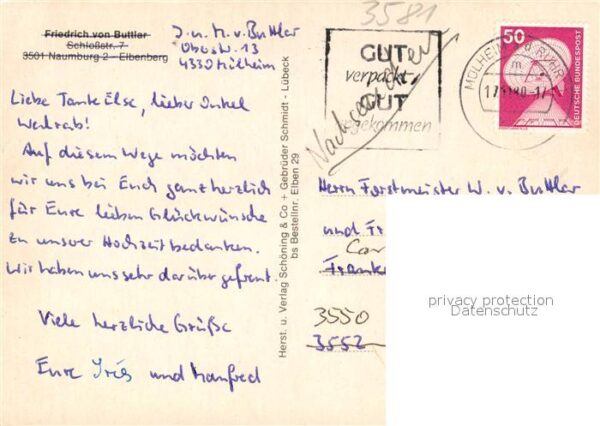 Friedrich von Buttlar
Schloßstr. 7
3501 Naumburg 2 - Elbenberg
J. u. M. v. Buttlar
Obostr. 13
4330 Mülheim
3581
GUT
verpackt
GUT
gekommen
Nachsenden
MÜLHEIM A D RUHR
50
DEUTSCHE BUNDESPOST
Liebe Tante Else, lieber Onkel
Wedrab!
Auf diesem Wege möchten
wir uns bei Euch ganz herzlich
für Eure lieben Glückwünsche
zu unserer Hochzeit bedanken.
Wir haben uns sehr darüber gefreut.
Viele herzliche Grüße
Eure Iris und Manfred
Herst. u. Verlag Schöning & Co + Gebrüder Schmidt - Lübeck
bs Bestellnr. Elben 29
Herrn Forstmeister W. v. Buttlar
und Fr
Car
Franke
3550
3552
privacy protection
Datenschutz